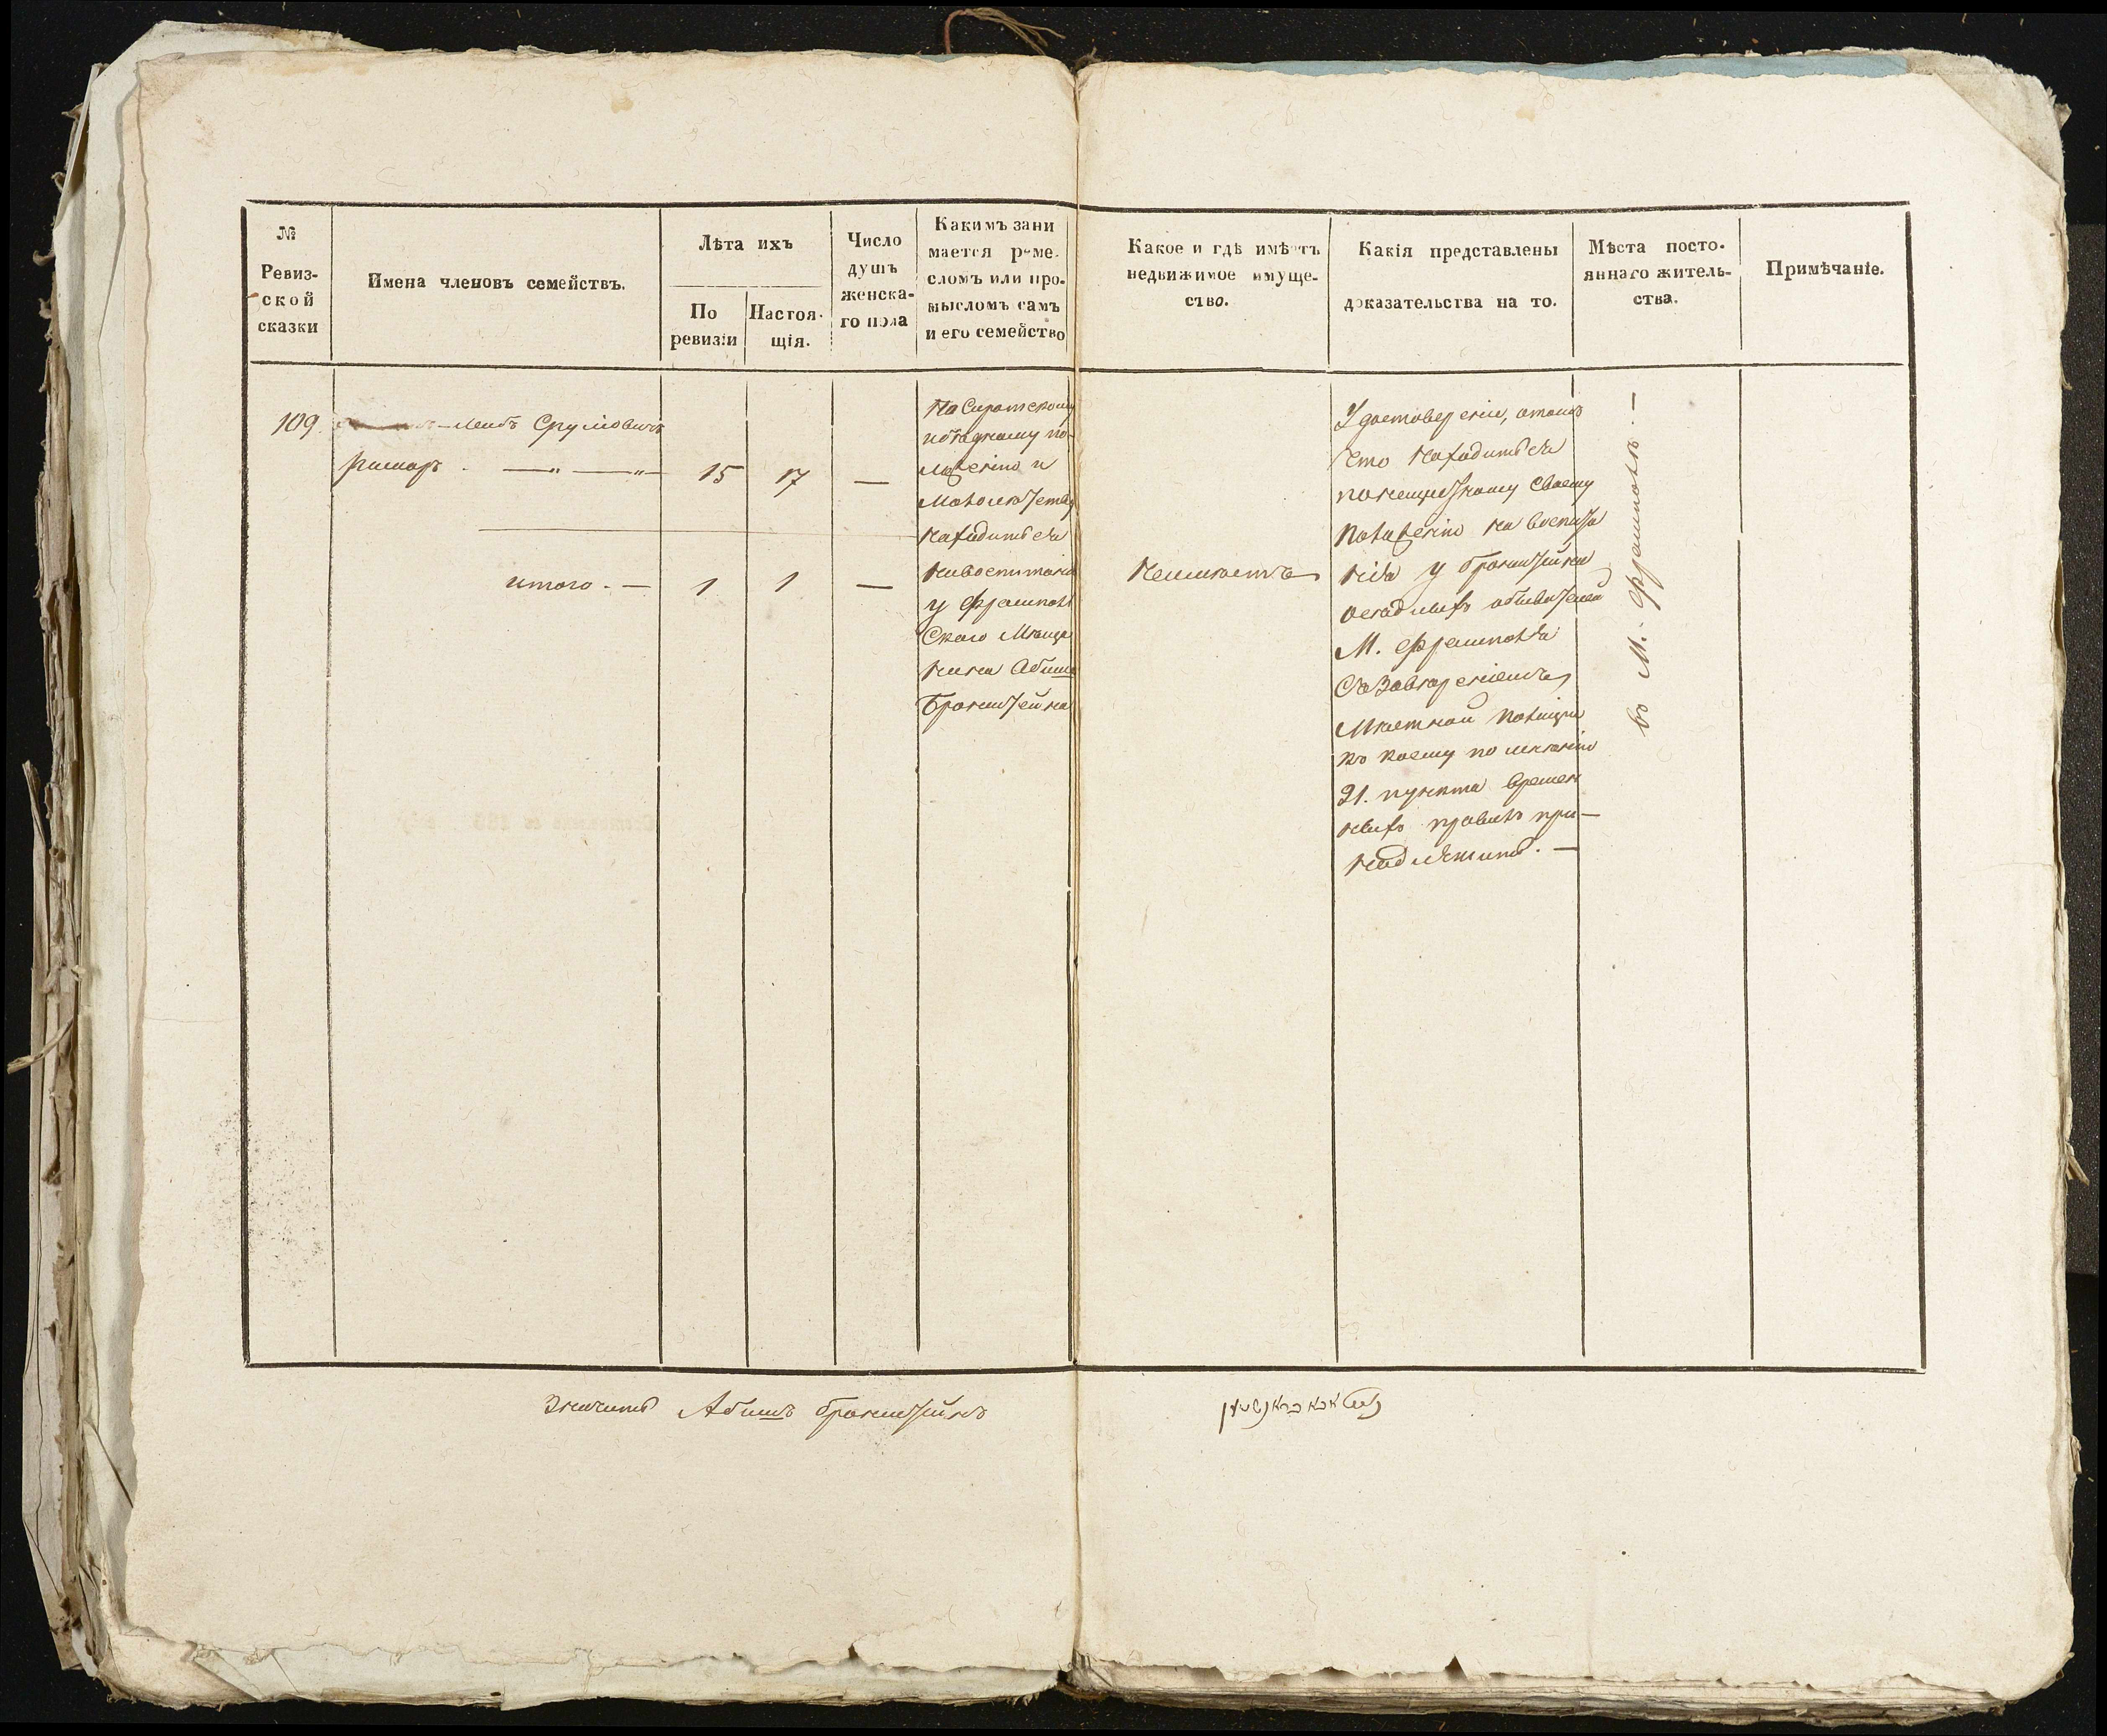 №
Ревиз-
ской
сказки
Имена членовъ семействъ.
Лѣта ихъ
По
ревизіи
Настоя-
щія.
Число
душъ
женска-
го пола
Какимъ зани
мается реме-
сломъ или про-
мысломъ самъ
и его семейство
Какое и гдѣ имѣетъ
недвижимое имуще-
ство.
Какія представлены
доказательства на то.
Мѣста посто-
яннаго житель-
ства.
Примѣчаніе.
109
Лейбъ Сруліовичъ
15 17 —
итого. — 1 1 —
По Сиротскому
и бѣдному по-
ложенію и
Малолѣтству
находится
на воспитаніи
у Фрампол
Скаго Мѣща
нина Абиша
Бронштейна
Неимѣетъ
Удостовереніе, отомъ
что находится
по нещастному своему
положенію на воспита
нія у Бронштейна
оседлыхъ обывателей
М. Фрамполя
Съ Завереніемъ
Мѣстной полиціи
къ коему по мненію
21. пункта времен
ныхъ правилъ при—
надлежитъ. —
въ М. Фрамполѣ —
Значитъ Абишъ Бронштейнъ